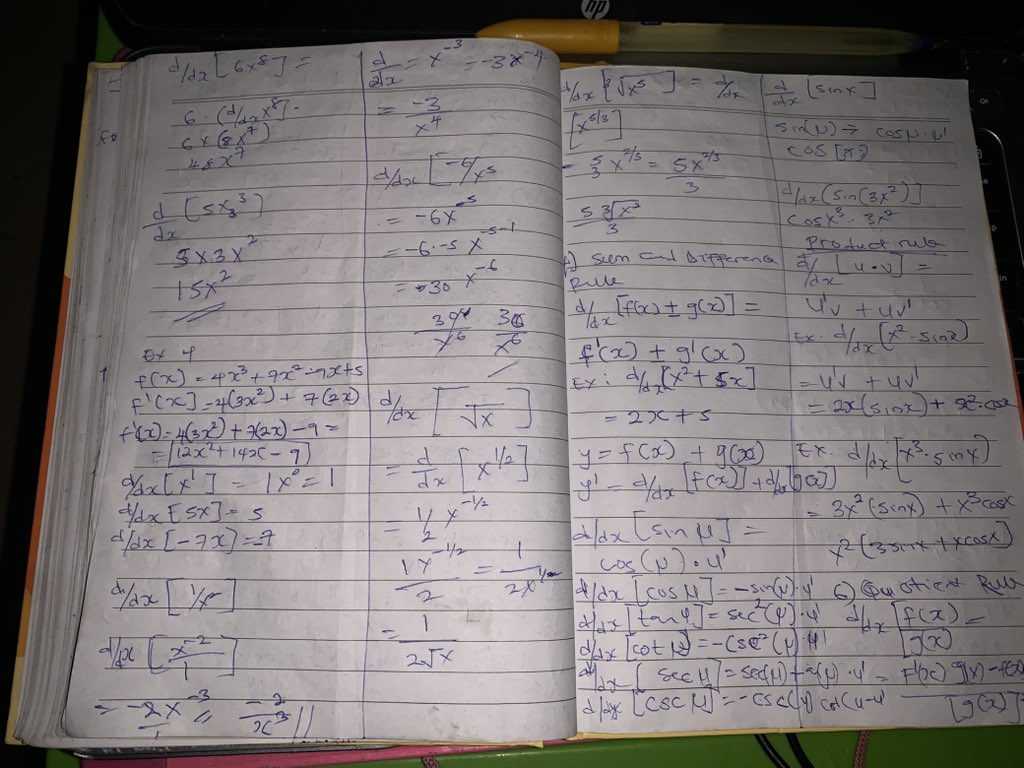 hp
d/dx [6x⁸] =
6 · (d/dx x⁸)
6 × (8x⁷)
48x⁷
d/dx [5x³]
5 × 3x²
15x²
Ex 4
f(x) = 4x³ + 7x² - 9x + 5
f'(x) = 4(3x²) + 7(2x)
f'(x) = 4(3x²) + 7(2x) - 9 =
= 12x² + 14x - 9
d/dx [x¹] = 1x⁰ = 1
d/dx [5x] = 5
d/dx [-7x] = -7
d/dx [1/x²]
d/dx [x⁻²/1]
= -2x⁻³/1 = -2/x³
d/dx = x⁻³ = -3x⁻⁴
= -3/x⁴
d/dx [-6/x⁵]
= -6x⁻⁵
= -6·-5 x⁻⁵⁻¹
= 30 x⁻⁶
30/x⁶
d/dx [√x]
= d/dx [x^1/2]
= 1/2 x^-1/2
1x^-1/2/2 = 1/2x^1/2
= 1/2√x
d/dx [³√x⁵] = d/dx
[x^5/3]
= 5/3 x^2/3 = 5x^2/3/3
5 ³√x²/3
Sum and Difference
Rule
d/dx [f(x) ± g(x)] =
f'(x) + g'(x)
Ex: d/dx [x² + 5x]
= 2x + 5
y = f(x) + g(x)
y' = d/dx [f(x)] + d/dx [g(x)]
d/dx [sin μ] =
cos(μ) · u'
d/dx [cos μ] = -sin(μ) · u'
d/dx [tan u] = sec²(u) · u'
d/dx [cot μ] = -csc²(μ) · u'
d/dx [sec μ] = sec(μ) tan(μ) · u'
d/dx [csc μ] = -csc(u) cot(u · u'
d/dx [sin x]
sin(μ) → cos μ · u'
cos [x]
d/dx (sin(3x²)]
cos x³ · 3x²
Product rule
d/dx [u·v] =
u'v + uv'
Ex. d/dx [x² · sinx]
= u'v + uv'
= 2x(sinx) + x² · cosx
Ex. d/dx [x³ · sinx]
= 3x²(sinx) + x³cosx
x²(3sinx + xcosx)
6) Quotient Rule
d/dx [f(x)/g(x)] =
= f'(x) g(x) -
[g(x)]²